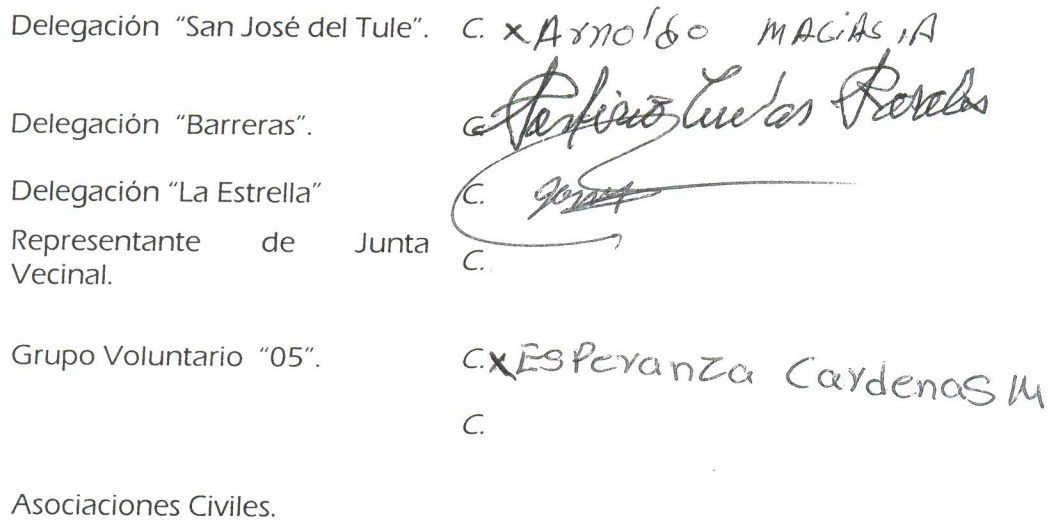 Delegación “San José del Tule”. C. x Arnoldo MACiAS .A
Delegación “Barreras”. C. Porfirio Cuevas Rosales
Delegación “La Estrella” C.
Representante de Junta
Vecinal. C.
Grupo Voluntario “05”. C. x ESPeranza Cardenas M
C.
Asociaciones Civiles.